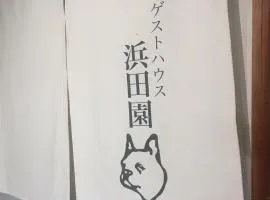 ゲストハウス
浜田園